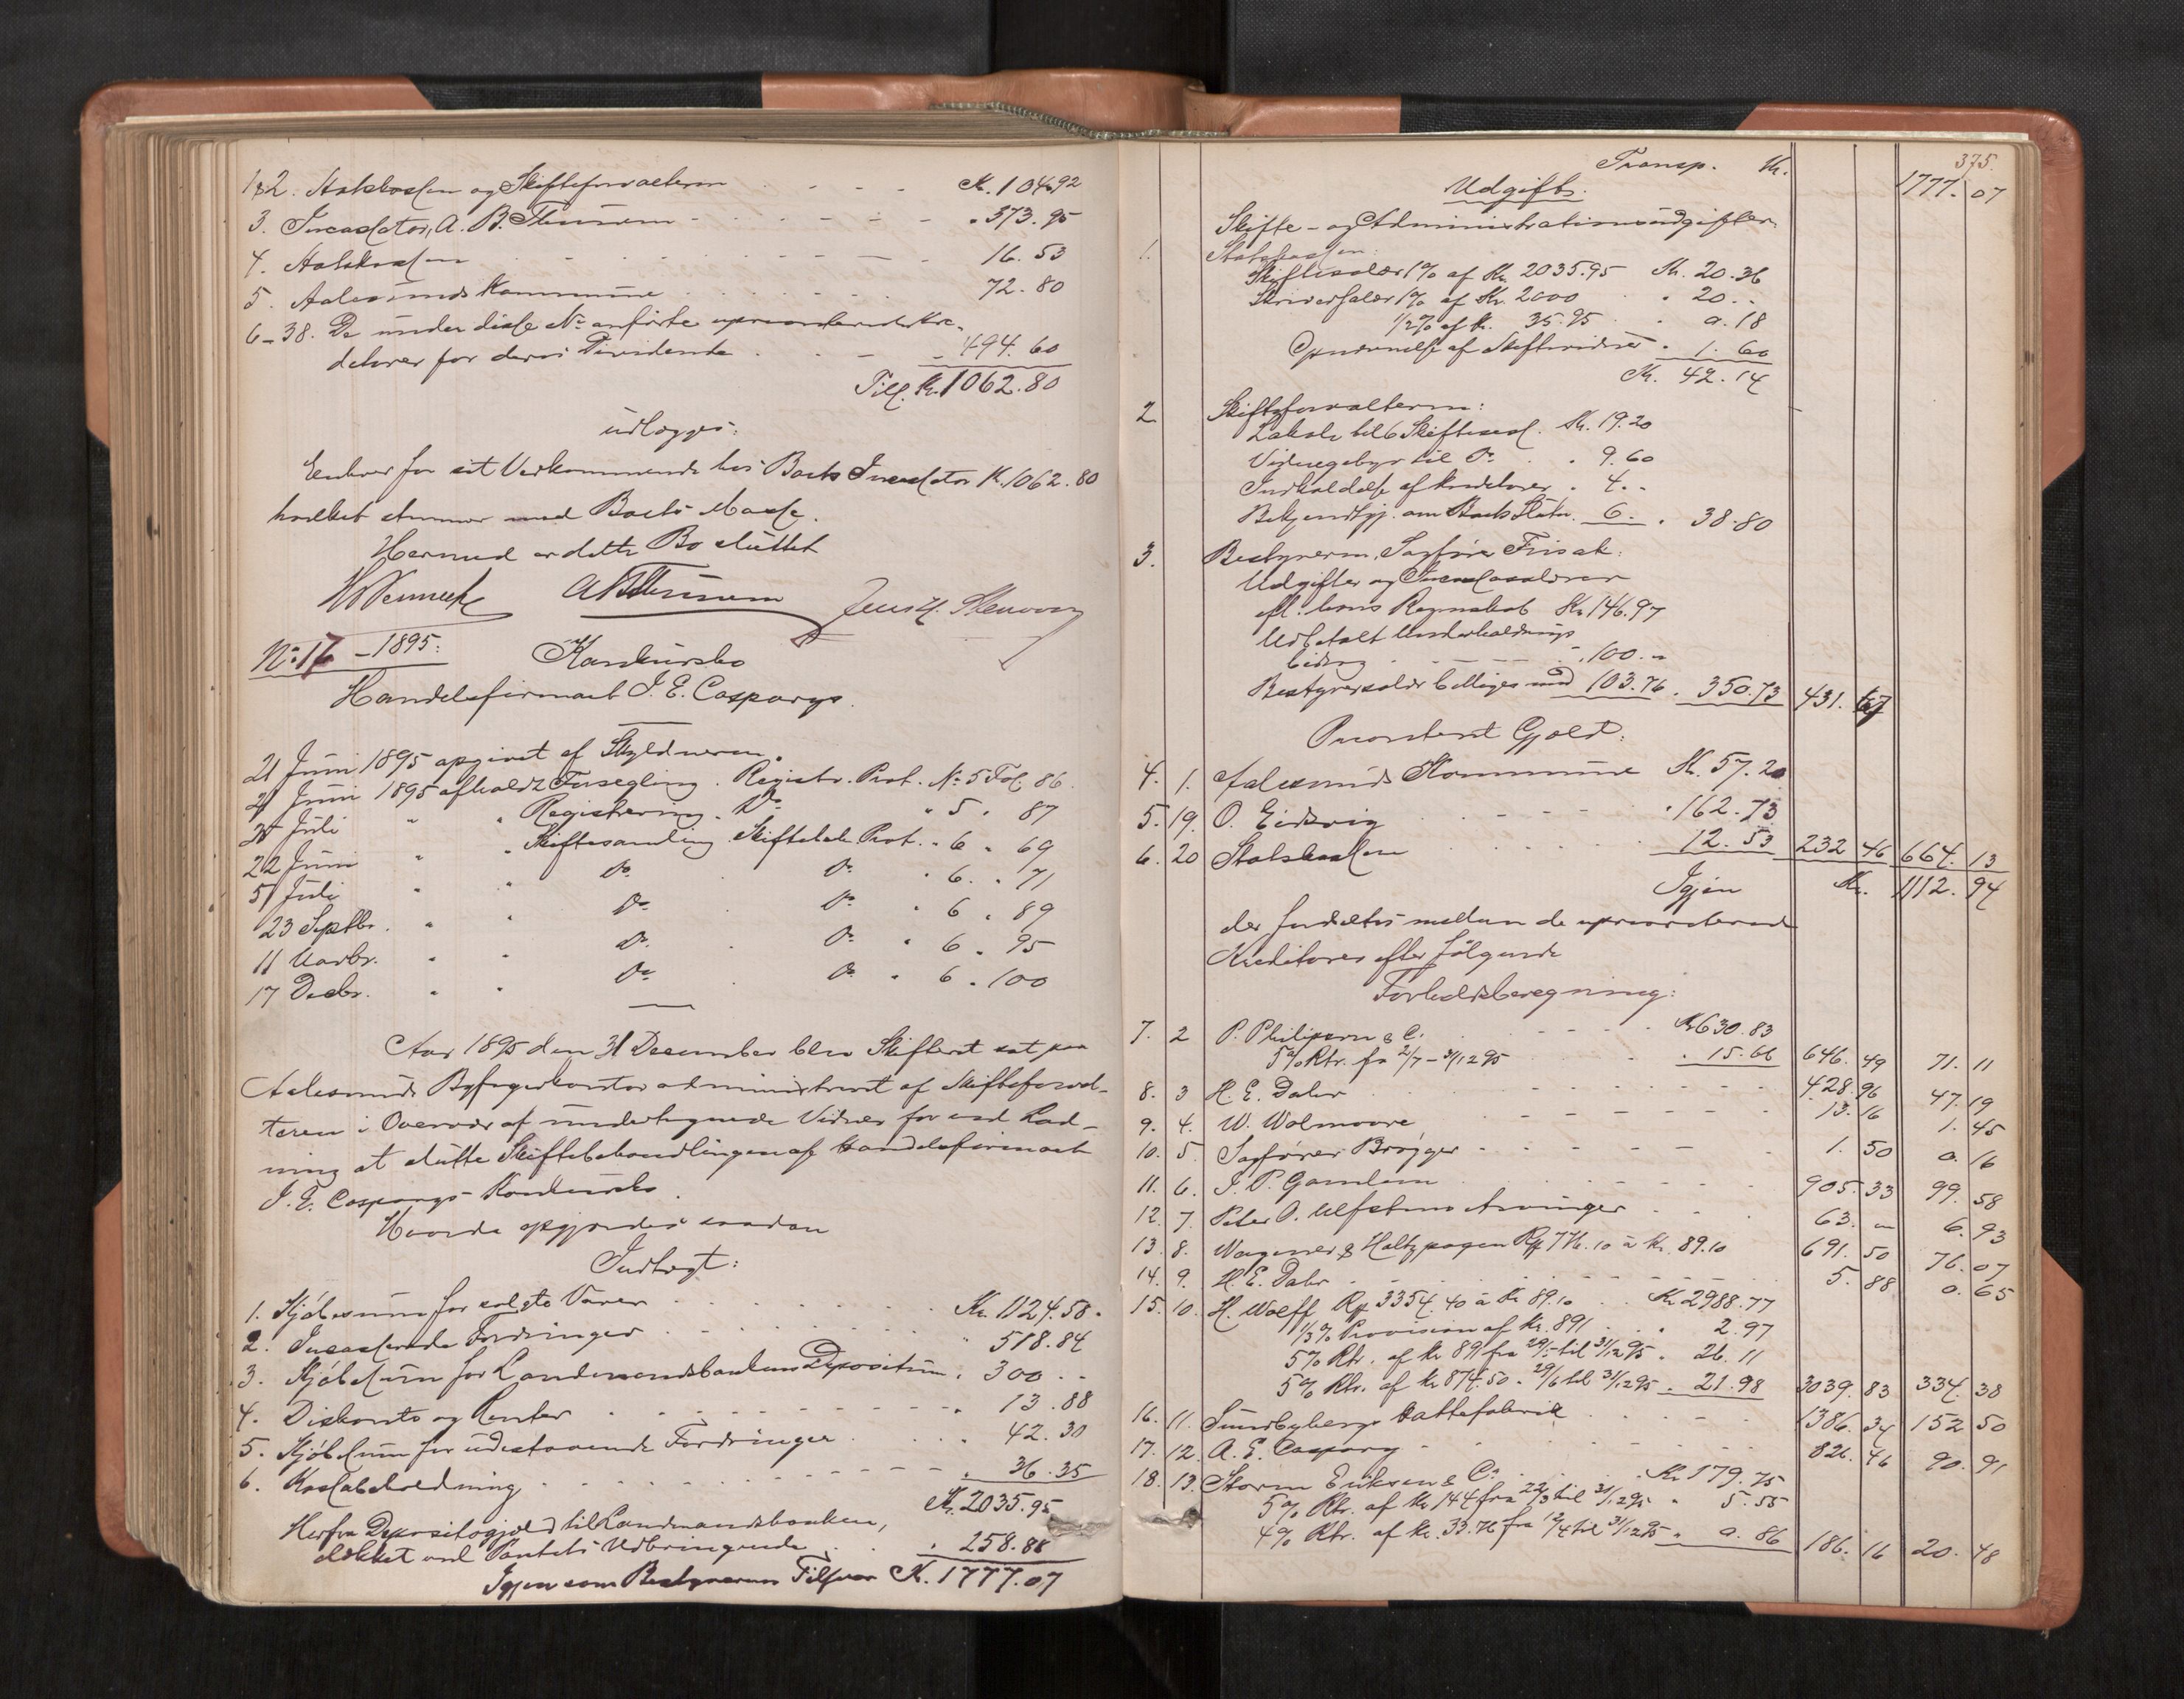 1&2. Statskassen og Skifteforvalteren Kr. 104.92
3. Incassator, A. B. " 373.95
4. Statskassen 16.53
5. Aalesunds Kommune 72.80
6-38. De under disse No anførte upriorterede Kre-
ditorer for deres Dividende 494.60
Till. Kr. 1062.80
udlægges:
Enhver for sit Vedkommende hos Boets Incassator Kr. 1062.80
hvilket stemmer med Boets Masse.
Hermed er dette Bo sluttet
No 17 - 1895.
Konkursbo
Handelsfirmaet J. E. Casparys.
21 Juni 1895 opgivet af Skyldneren.
21 Juni 1895 afholdt Forsegling. Registr. Prot. No 5 Fol. 86.
Juli " " Registrering. Do " 5 " 87
22 Juni " " Skiftesamling Skiftebeh. Prot. " 6 " 69
Juli " " Do Do " 6. " 71
23 Septbr. " " Do Do " 6 " 89
11 Novbr. " " Do Do " 6 " 95
17 Decbr. " " Do Do " 6 " 100
Aar 1895 den 31 December blev Skifteret sat paa
Aalesunds Byfogedkontor administreret af Skifteforval-
teren i Overvær af undertegnede Vidner for ved Lod-
ning at slutte Skiftebehandlingen af Handelsfirmaet
J. E. Casparys Konkursbo.
Hvorda opgjordes saadan
Indtægt:
1. Kjøbesum for solgte Varer Kr. 1124.58.
2. Incasserede Fordringer " 518.84
3. Kjøbesum for Landmandsbankens Depositum " 300. -
4. Diskonto og Renter " 13.88
5. Kjøbesum for udestaaende Fordringer " 42.30
6. Kassabeholdning " 36.35
Kr. 2035.95
Herfra Depositogjæld til Landmandsbanken,
dækket ved Pantets Udbringende " 258.88
Igjen som Bestyrerens Tilsvar Kr. 1777.07
375.
Transp. Kr. 1777.07
Udgift:
Skifte- og Administrationsudgifter.
1. Statskassen:
Skiftesalær 1% af Kr. 2035.95 Kr. 20.36
Skriversalær 1% af Kr. 2000 " 20. -
1/2% af Kr. 35.95 " 0.18
Opnævnelse af Skiftevidner " 1.60
Kr. 42.14
2 Skifteforvalteren:
til 6 Skiftesaml. Kr. 19.20
Vidnegebyr til Do " 9.60
Indkaldelse af Kreditorer " 4. -
Bekjendtgj. om Boets Slutn. 6. " 38.80
3. Bestyreren, Sagfører Frisak:
Udgifter og Incassosalærer
efl. hans Regnskab Kr. 146.97
Udbetalt Underholdnings
bidrag " 100. -
Bestyrersalær billiges med 103.76 " 350.73 431.67
Prioriteret Gjæld:
4. 1. Aalesunds Kommune Kr. 57.20
5. 19. O. Eidsvig " 162.73
6. 20 Statskassen 12.53 232 46 664.13
Igjen Kr. 1112.94
der fordeles mellem de upriorterede
Kreditorer efter følgende
Forholdsberegning:
7. 2 P. Philipsen & C. Kr. 630.83
5% Rtr. fra 2/7 - 31/12 95 " 15.66 646.49 71.11
8. 3 H. E. Dahr 428.96 47.19
9. 4. W. Wolmoore 13.16 1.45
10. 5. Sagfører Brøgger 1.50 0.16
11. 6. J. P. Gamlem 905.33 99.58
12. 7. Peter O. Ulfstens Arvinger 63. - 6.93
13. 8. Wagener & Holtzpagen Rp 776.10 à Kr. 89.10 691.50 76.07
14. 9. H. E. Dahr 5.88 0.65
15. 10. H. Wolff Rp 3354.40 à Kr 89.10 Kr 2988.77
1/3% Provision af Kr. 891 " 2.97
5% Rtr. af Kr 891 fra 29/5 til 31/12 95 " 26.11
5% Rtr. af Kr 874.50 " 29/6 til 31/12 95 " 21.98 3039.83 334.38
16. 11. Sundbybergs Hattefabrik 1386.34 152 50
17. 12. A. E. Caspary 826.46 90.91
18. 13. Storm Eriksen & Co Kr 179.75
5% Rtr. af Kr 144 fra 22/3 til 31/12 95 " 5.55
4% Rtr. af Kr. 33.76 fra 12/4 til 31/12 95 " 0.86 186.16 20.48